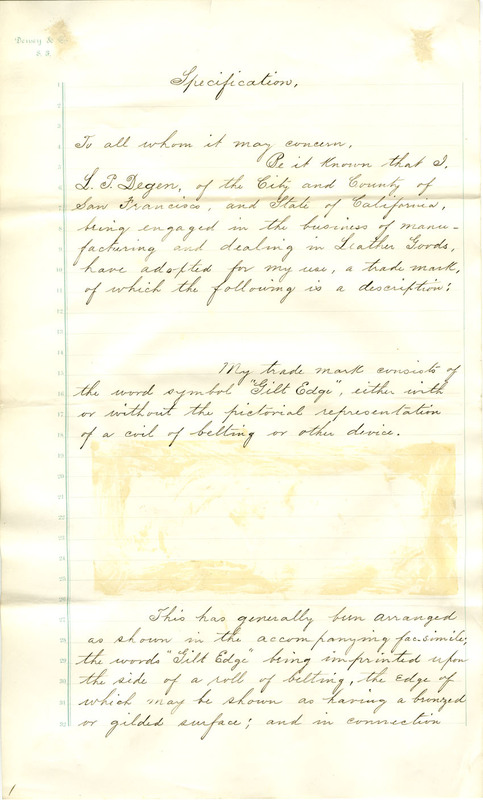 Dewey &
S. F.
Specification.
1
2
3
4
To all whom it may concern,
5
Be it Known that I,
6
L. P. Degen, of the City and County of
7
San Francisco, and State of California,
8
being engaged in the business of manu-
9
facturing and dealing in Leather Goods,
10
have adopted for my use, a trade mark,
11
of which the following is a description:
12
13
14
15
My trade mark consists of
16
the word symbol "Gilt Edge", either with
17
or without the pictorial representation
18
of a coil of belting or other device.
19
20
21
22
23
24
25
26
27
This has generally been arranged
28
as shown in the accompanying facsimile;
29
the words "Gilt Edge" being imprinted upon
30
the side of a roll of belting, the edge of
31
which may be shown as having a bronzed
32
or gilded surface; and in connection
1